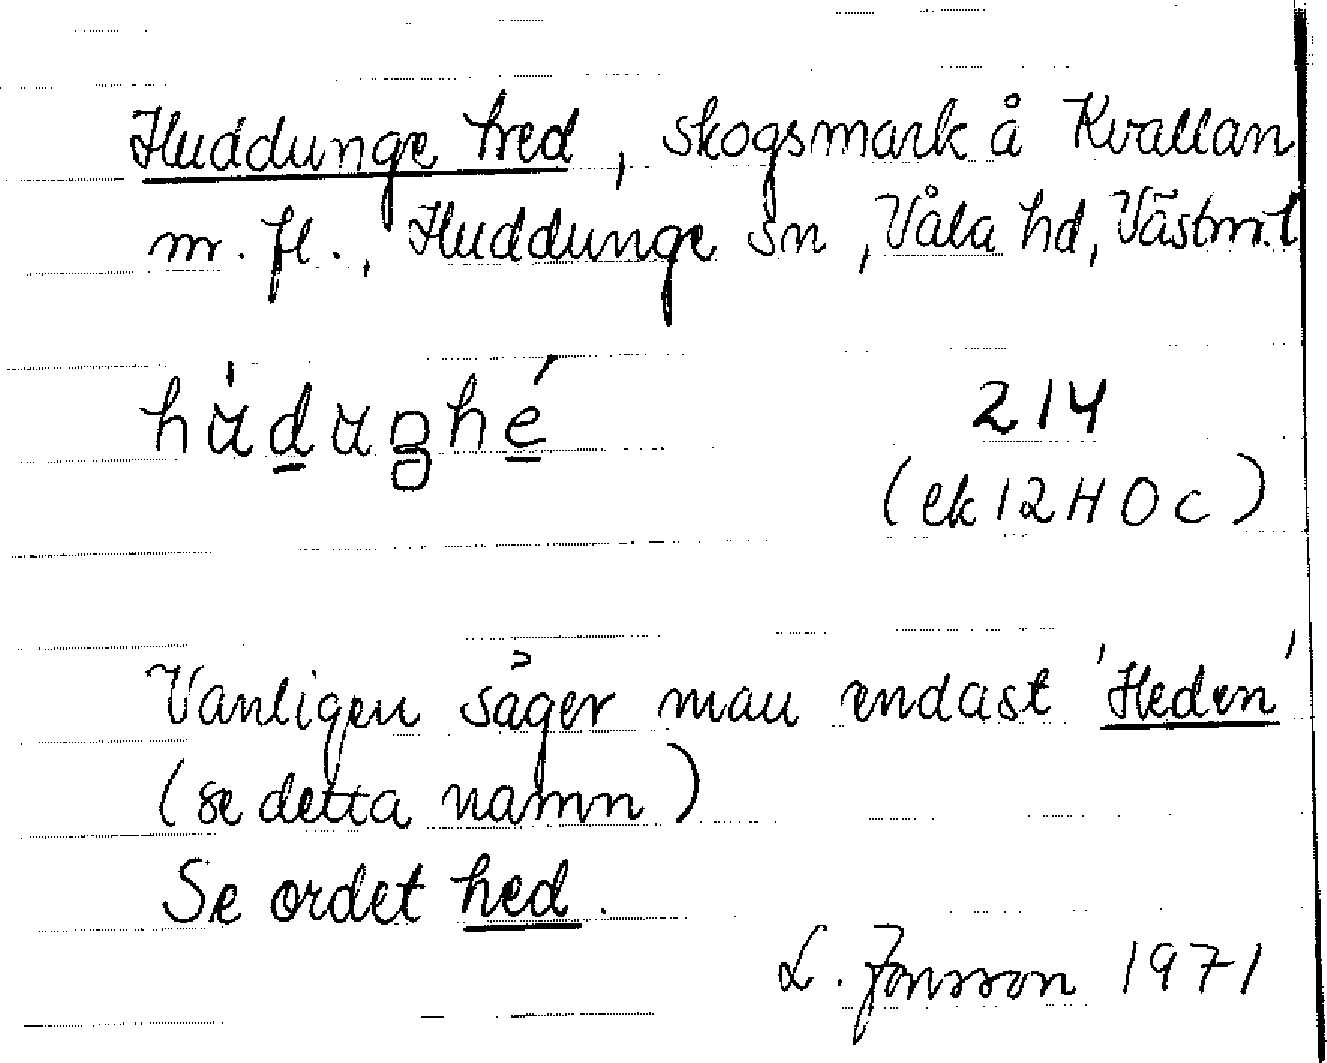 Huddunge hed, skogsmark å Kvallan
m. fl., Huddunge sn, Våla hd, Västm.l
214
(ek 12H 0c)
Vanligen säger man endast 'Heden'
(se detta namn)
Se ordet hed.
L. Jonsson 1971